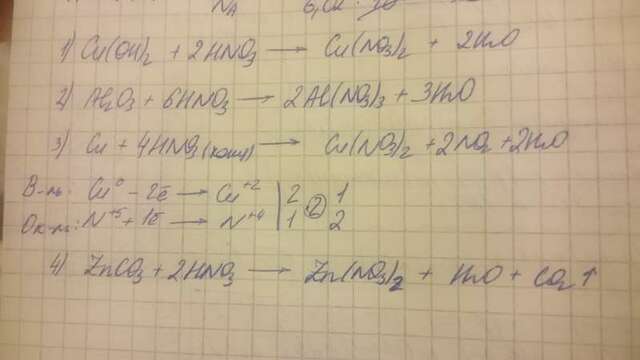 N_A 6,02·10
1) Cu(OH)₂ + 2HNO₃ → Cu(NO₃)₂ + 2H₂O
2) Al₂O₃ + 6HNO₃ → 2Al(NO₃)₃ + 3H₂O
3) Cu + 4HNO₃(конц) → Cu(NO₃)₂ + 2NO₂ + 2H₂O
В-ль: Cu⁰ - 2ē → Cu⁺² | 2 ② 1
Ок-ль: N⁺⁵ + 1ē → N⁺⁴ | 1 2
4) ZnCO₃ + 2HNO₃ → Zn(NO₃)₂ + H₂O + CO₂↑